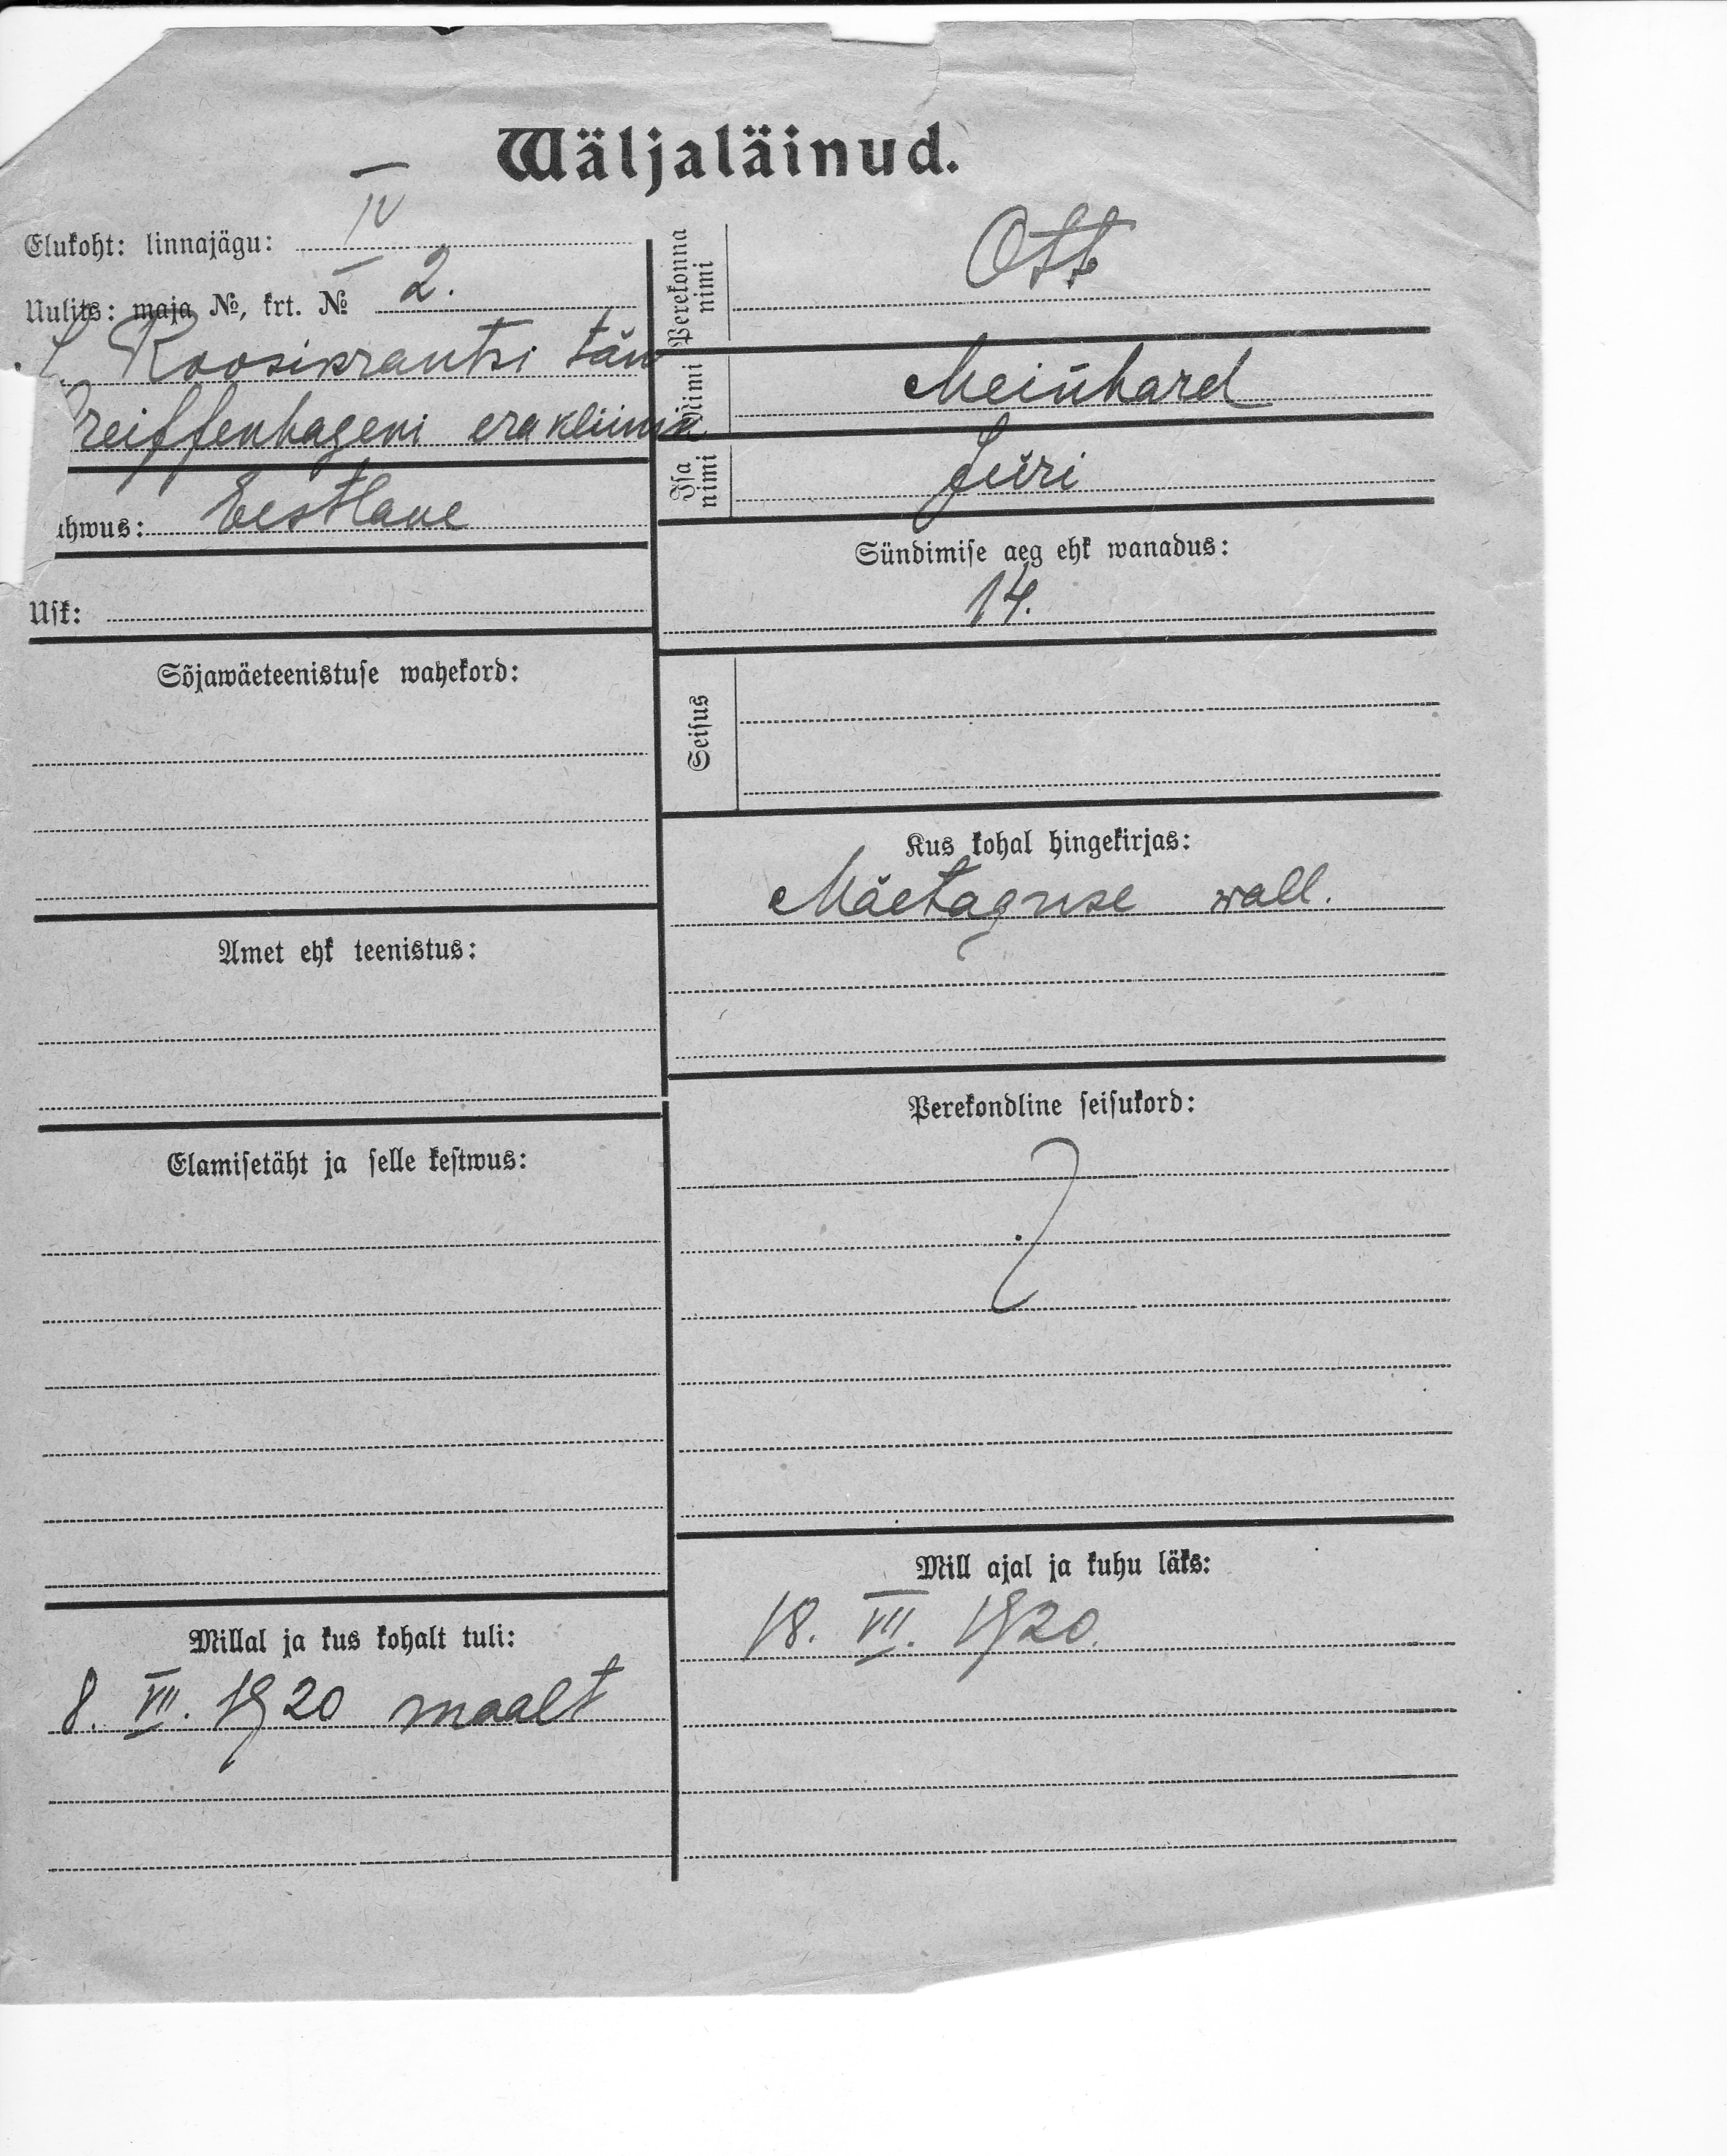 Wäljaläinud.
Elukoht: linnajägu: IV
Uulits: maja №, krt. № 2.
Roosikrantsi tän
reiffenhageni erakliinik
ahwus: Eestlane
Usk:
Sõjawäeteenistuse wahekord:
Amet ehk teenistus:
Elamisetäht ja selle kestwus:
Millal ja kus kohalt tuli:
8. VII. 1920 maalt
Perekonna nimi Ott
Nimi Meinhard
Isa nimi Jüri
Sündimise aeg ehk wanadus:
14.
Seisus
Kus kohal hingekirjas:
Mäetaguse wall.
Perekondline seisukord:
?
Mill ajal ja kuhu läks:
18. VII. 1920.